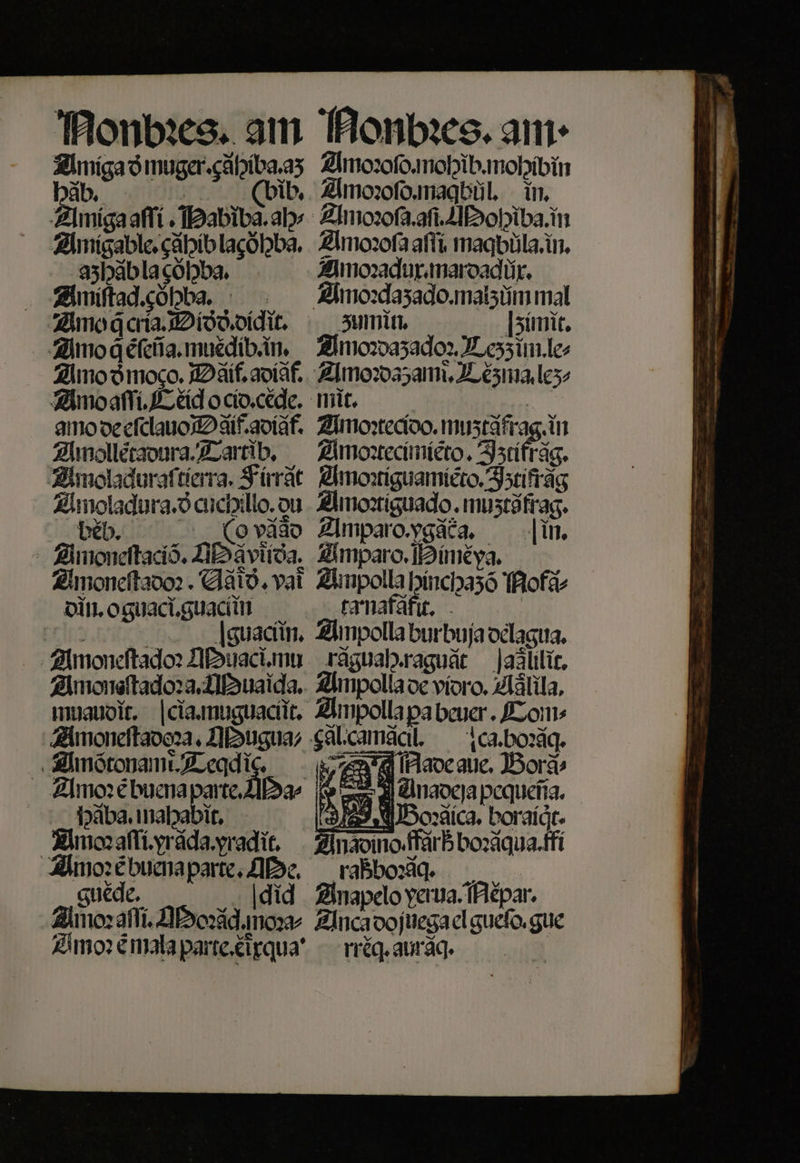 Nonbres. am
Amiga d̄ muger.çāhiba.az
háb. (bib.
Amiga assi. Habiba. ahɂ
Amigable. çáhib laçóhba.
azháb laçóhba.
Amistad.çóhba.
Amo q̄ cria. Didd.oidit.
Amo q̄ ēseña.muēdib.in.
Amo d̄ moço. Dáif.adiáf.
Amo assi. L ēid o cid.cēde.
amo de esclauo Dáif.adiáf.
Amollētadura. Lartib.
Amoladura s tierra. Firrát
Amoladura.d̄ cuchillo. ou
béb. (o váão
Amonestació. Mávida.
Amonestador. Uáid. vai
din. o guaci.guaciin
[guaciin.
Amonestador Muaci.mu
Amonestadora. Muaida.
muauoit. [cia.muguaciit.
Amonestadora. Muguaɂ
Amōtonami. Leqdiç.
Amor é buena parte. Maɂ
hába.mahabit.
Amor assi.yráda.yradit.
Amor é buena parte. Me
guéde. [did
Amor assi. Morád.moraɂ
Amor é mala parte.ēixquaʼ
Nonbres. am.
Amoroso.mohib.mohibin
Amoroso.maqbūl. in.
Amorosa.asi. Mohiba.in
Amorosa assi maqbūla.in.
Amoradux.maroadūx.
Amordazado.malzūm mal
zumin. [zimit.
Amordazador. Lezzin.leɂ
Amordazami. Lēzma.lezɂ
mit.
Amortecido.muztáfrag.in
Amortecimiēto. Iztifrág.
Amortiguamiēto. Iztifrág
Amortiguado.muztáfrag.
Amparo.ygáta. [in.
Amparo. Himéya.
Ampolla hinchazó Nofáɂ
ta nafáfit.
Ampolla burbuja del agua.
ráguah.raguát [aálilit.
Ampolla de vidro. Aálila.
Ampolla pa beuer. Lomɂ
çál.camácil. [ca.boráq.
Nade aue. Boráɂ
Anadeja pequeña.
Boráica. boraiqt.
Anadino.ffárk boráqua.ffi
rak boráq.
Anapelo yerua. Népar.
Anca do juega el gueso.gue
rréq.auráq.